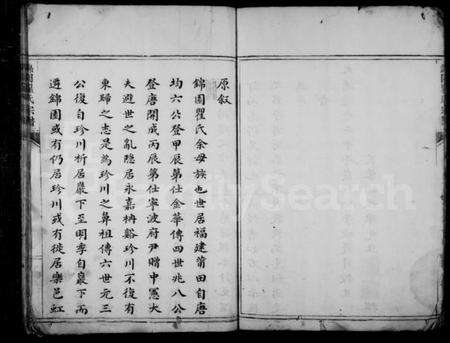 原叙
錦園瞿氏余母族也世居福建莆田自唐
均六公登甲辰第仕金華傳四世兆八公
登唐開成丙辰第仕寧波府尹贈中憲大
夫避世之亂隱居永嘉枏谿珍川不復有
東歸之志是為珍川之鼻祖傳六世元三
公復自珍川析居巖下至明季自巖下而
遷錦園或有仍居珍川或有徙居樂邑虹
FamilySearch